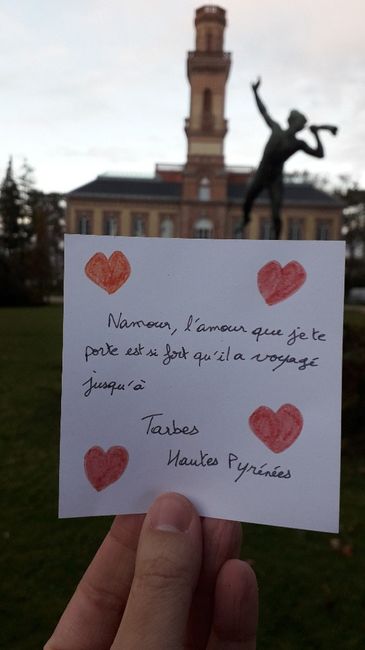 Namour, l'amour que je te
porte est si fort qu'il a voyagé
jusqu'à
Tarbes
Hautes Pyrénées